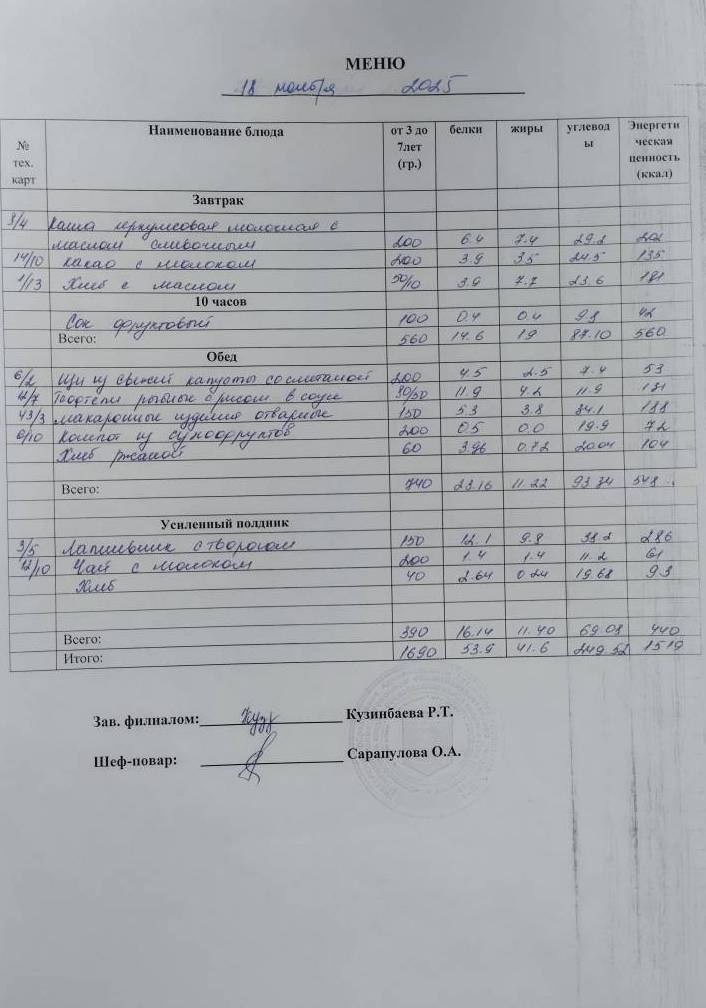 МЕНЮ
18 ноября 2025
№ тех. карт Наименование блюда от 3 до 7лет (гр.) белки жиры углевод ы Энергети ческая ценность (ккал)
Завтрак
3/4 Каша геркулесовая молочная с
маслом сливочным 200 6.4 7.4 29.2 202
14/10 какао с молоком 200 3.9 3.5 24.5 135
1/13 Хлеб с маслом 50/10 3.9 7.7 23.6 181
10 часов
Сок фруктовый 100 0.4 0.4 9.8 42
Всего: 560 14.6 19 87.10 560
Обед
6/2 Щи из свежей капусты со сметаной 200 4.5 2.5 7.4 53
12/7 Тефтели рыбные с рисом в соусе 80/50 11.9 4.2 11.9 131
43/3 макаронные изделия отварные 150 5.3 3.8 34.1 188
6/10 Компот из сухофруктов 200 0.5 0.0 19.9 72
Хлеб ржаной 60 3.96 0.72 20.04 104
Всего: 740 23.16 11.22 93.34 548
Усиленный полдник
3/5 Лапшевник с творогом 150 12.1 9.8 38.2 286
12/10 Чай с молоком 200 1.4 1.4 11.2 61
Хлеб 40 2.64 0.24 19.68 93
Всего: 390 16.14 11.40 69.08 440
Итого: 1690 53.9 41.6 249.52 1519
Зав. филиалом: Кузинбаева Р.Т.
Шеф-повар: Сарапулова О.А.